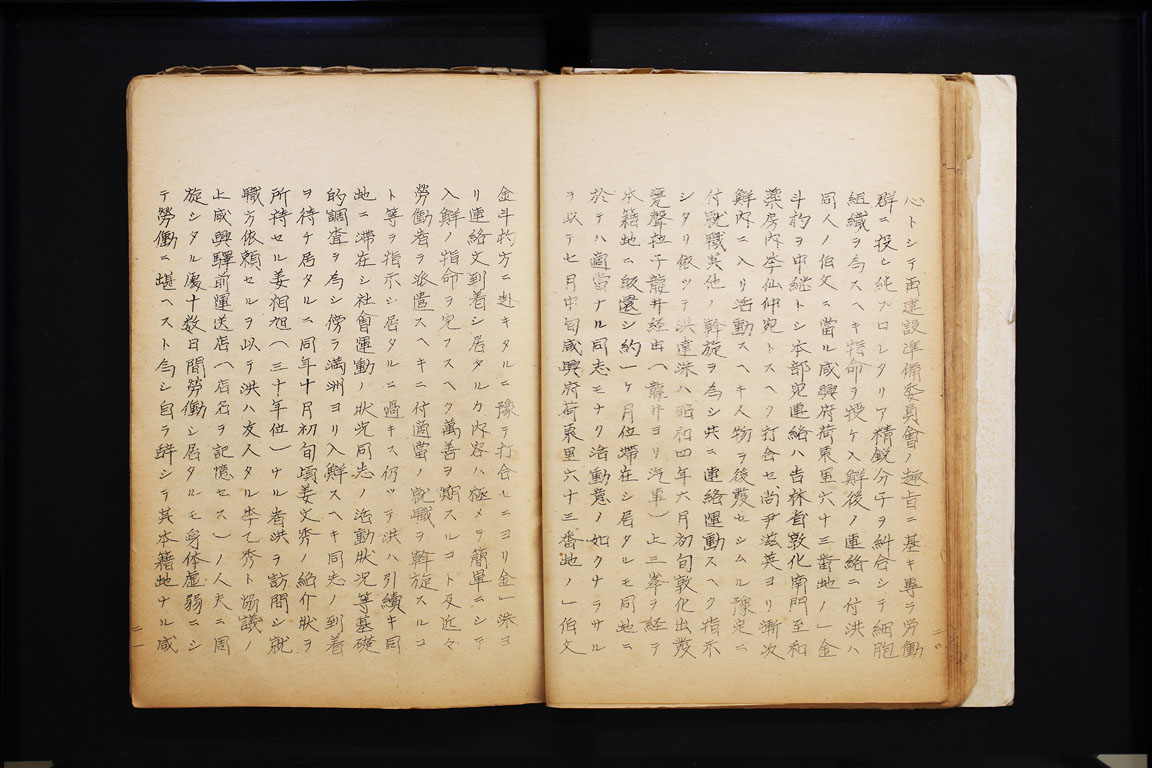 心トシテ再建設準備委員會ノ趣旨ニ基キ專ラ労働
群ニ投シ純プロレタリア精鋭分子ヲ糾合シテ細胞
組織ヲ為スヘキ指命ヲ授ケ入鮮後ノ連絡ニ付洪ハ
同人ノ伯文ニ當ル咸興府荷東里六十三番地ノ一金
斗杓ヲ中継トシ本部宛連絡ハ吉林省敦化南門至和
薬房内李仙仲宛トスヘク打合セ尚尹滋英ヨリ漸次
鮮内ニ入リ活動スヘキ人物ヲ後發セシムル豫定ニ
付就職其他ノ斡旋ヲ為シ共ニ連絡運動スヘク指示
シタリ依ツテ洪達洙ハ昭和四年六月初旬敦化出發
甕聲拉子龍井経由(龍井ヨリ汽車)上三峯ヲ経テ
本籍地ニ皈還シ約一ケ月位滞在シ居タルモ同地ニ
於テハ適當ナル同志モナク活動意ノ如クナラサル
ヲ以テ七月中旬咸興府荷東里六十三番地ノ一伯文
二〇
金斗杓方ニ赴キタルニ豫テ打合セニヨリ金一洙ヨ
リ連絡文到着シ居タルカ内容ハ極メテ簡單ニシテ
入鮮ノ指命ヲ完フスヘク萬善ヲ期スルコト及近々
労働者ヲ派遣スヘキニ付適當ノ就職ヲ斡旋スルコ
ト等ヲ指示シ居タルニ過キス仍ツテ洪ハ引續キ同
地ニ滞在シ社會運動ノ状況同志ノ活動狀況等基礎
的調査ヲ為シ傍ラ満洲ヨリ入鮮スヘキ同志ノ到着
ヲ待ケ居タルニ同年十月初旬頃姜文秀ノ紹介狀ヲ
所持セル姜相旭(三十年位)ナル者洪ヲ訪問シ就
職方依頼セルヲ以テ洪ハ友人タル李乙秀ト協議ノ
上咸興驛前運送店(店名ヲ記憶セス)ノ人夫ニ周
旋シタル處十数日間労働シ居タルモ身体虚弱ニシ
テ労働ニ堪ヘスト為シ自ラ辞シテ其本籍地ナル咸
二一